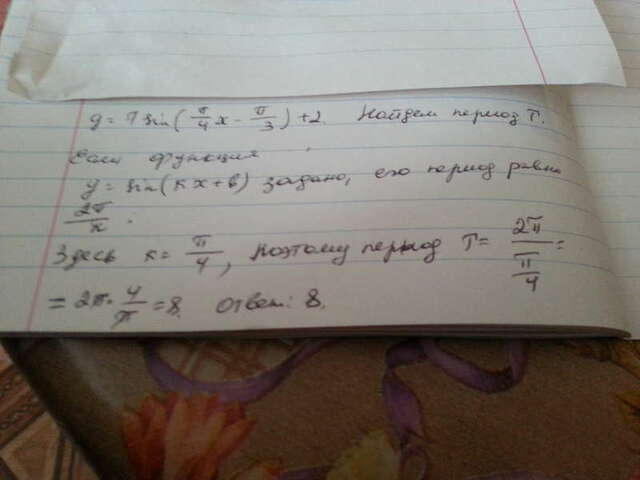 y = 7 sin(π/4 x − π/3) + 2. Найдем период T.
Если функция
y = sin(кx+в) задано, его период равна
2π/к.
Здесь к = π/4, поэтому период T = 2π/(π/4) =
= 2π · 4/π = 8. Ответ: 8.